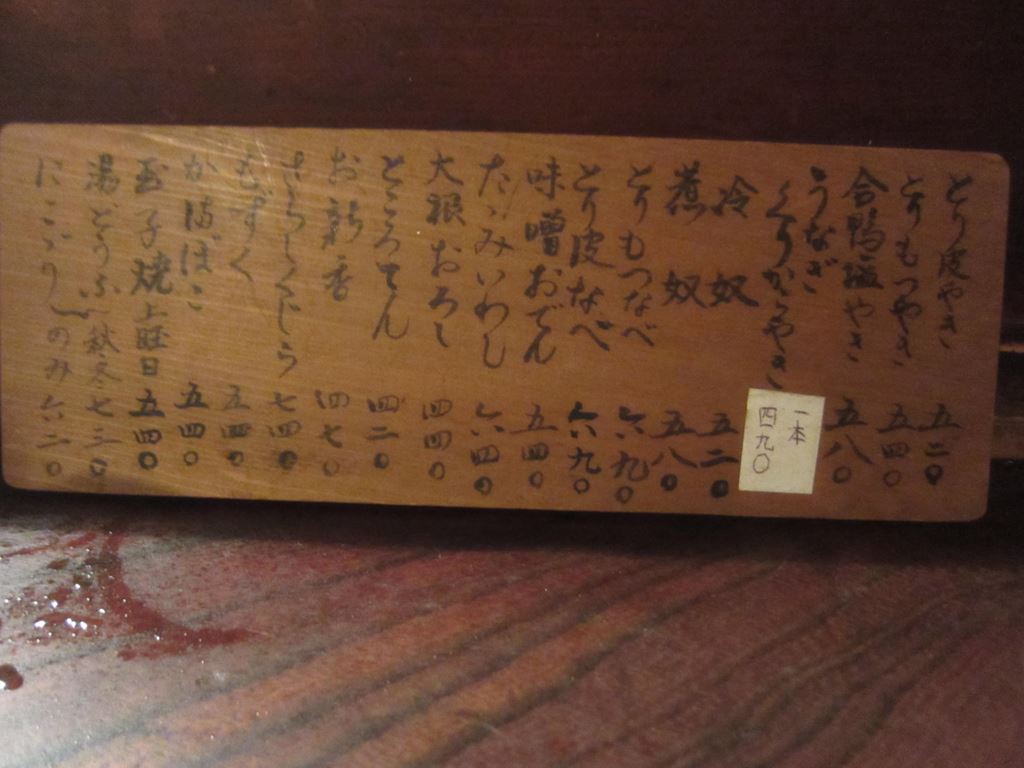 とり皮やき 五二〇
とりもつやき 五四〇
合鴨塩やき 五八〇
うなぎ
くりからやき 一本 四九〇
冷奴 五二〇
煮奴 五八〇
とりもつなべ 六九〇
とり皮なべ 六九〇
味噌おでん 五四〇
たゝみいわし 六四〇
大根おろし 四四〇
ところてん 四二〇
お新香 四七〇
さらしくじら 七四〇
もずく 五四〇
かまぼこ 五四〇
玉子焼 土旺日 五四〇
湯どうふ 秋冬 七三〇
にこゞり のみ 六二〇